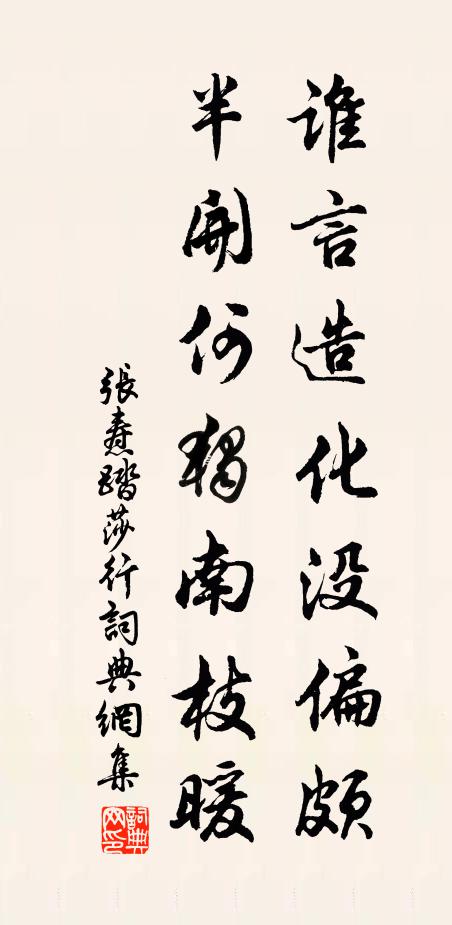 誰言造化没偏頗
半開何獨南枝暖
張燾踏莎行詞典網集
詞典網印